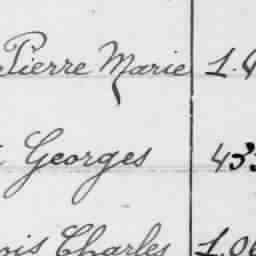 Pierre Marie 1.
Georges 433
ois Charles 1.06